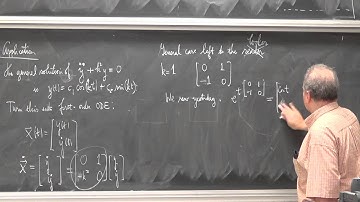 Application
The general solution of ÿ + k²y = 0
is y(t) = c₁ cos(kt) + c₂ sin(kt)
Turn this into first-order ODE:
x(t) = [y(t) ẏ(t)]
ẋ = [ẏ ÿ] = [0 1 -k² 0] [y ẏ]
General case left to the reader
k=1 [0 1 -1 0]
We saw yesterday: e^{t[0 1 -1 0]} =